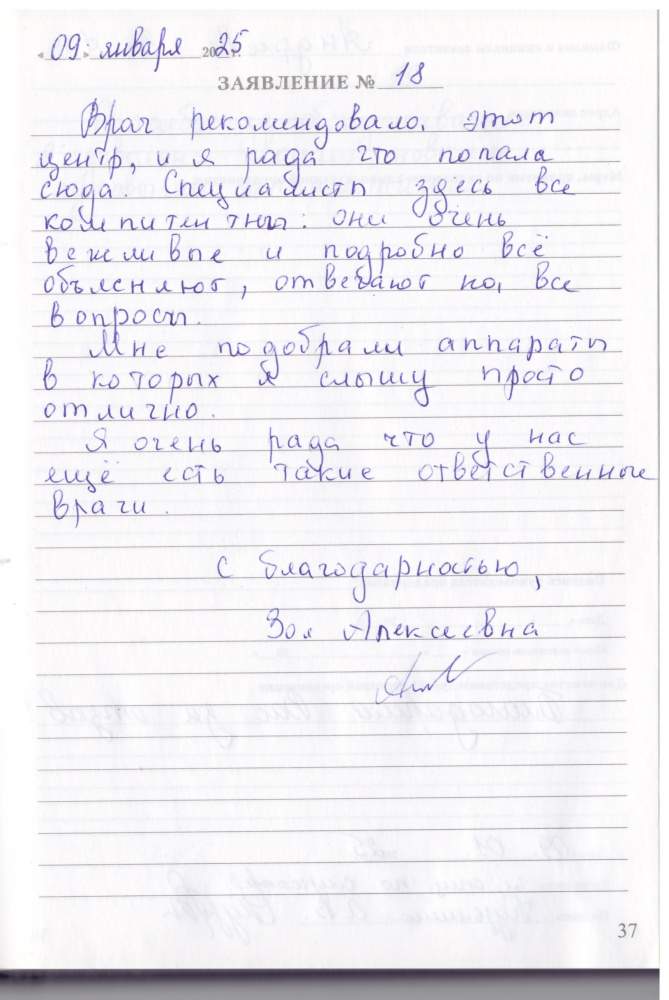 «09» января 2025 г.
ЗАЯВЛЕНИЕ № 18
Врач рекомендовала этот
центр, и я рада что попала
сюда. Специалисты здесь все
компитентны: они очень
вежливые и подробно всё
объясняют, отвечают на все
вопросы.
Мне подобрали аппараты
в которых я слышу просто
отлично.
Я очень рада что у нас
ещё есть такие ответственные
врачи.
С благодарностью,
Зоя Алексеевна
37